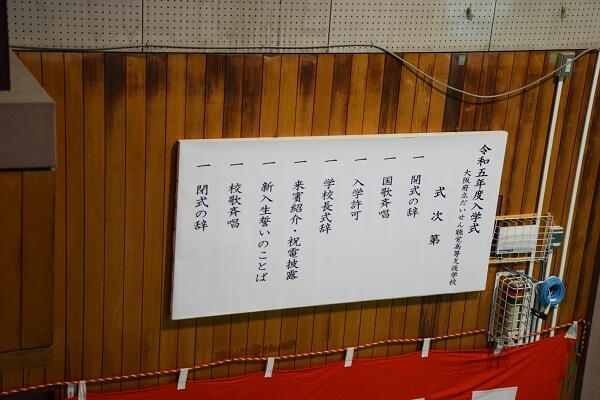 令和五年度入学式
大阪府立だいせん聴覚高等支援学校
式次第
一 開式の辞
一 国歌斉唱
一 入学許可
一 学校長式辞
一 来賓紹介・祝電披露
一 新入生誓いのことば
一 校歌斉唱
一 閉式の辞